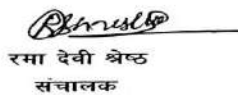 रमा देवी श्रेष्ठ
संचालक